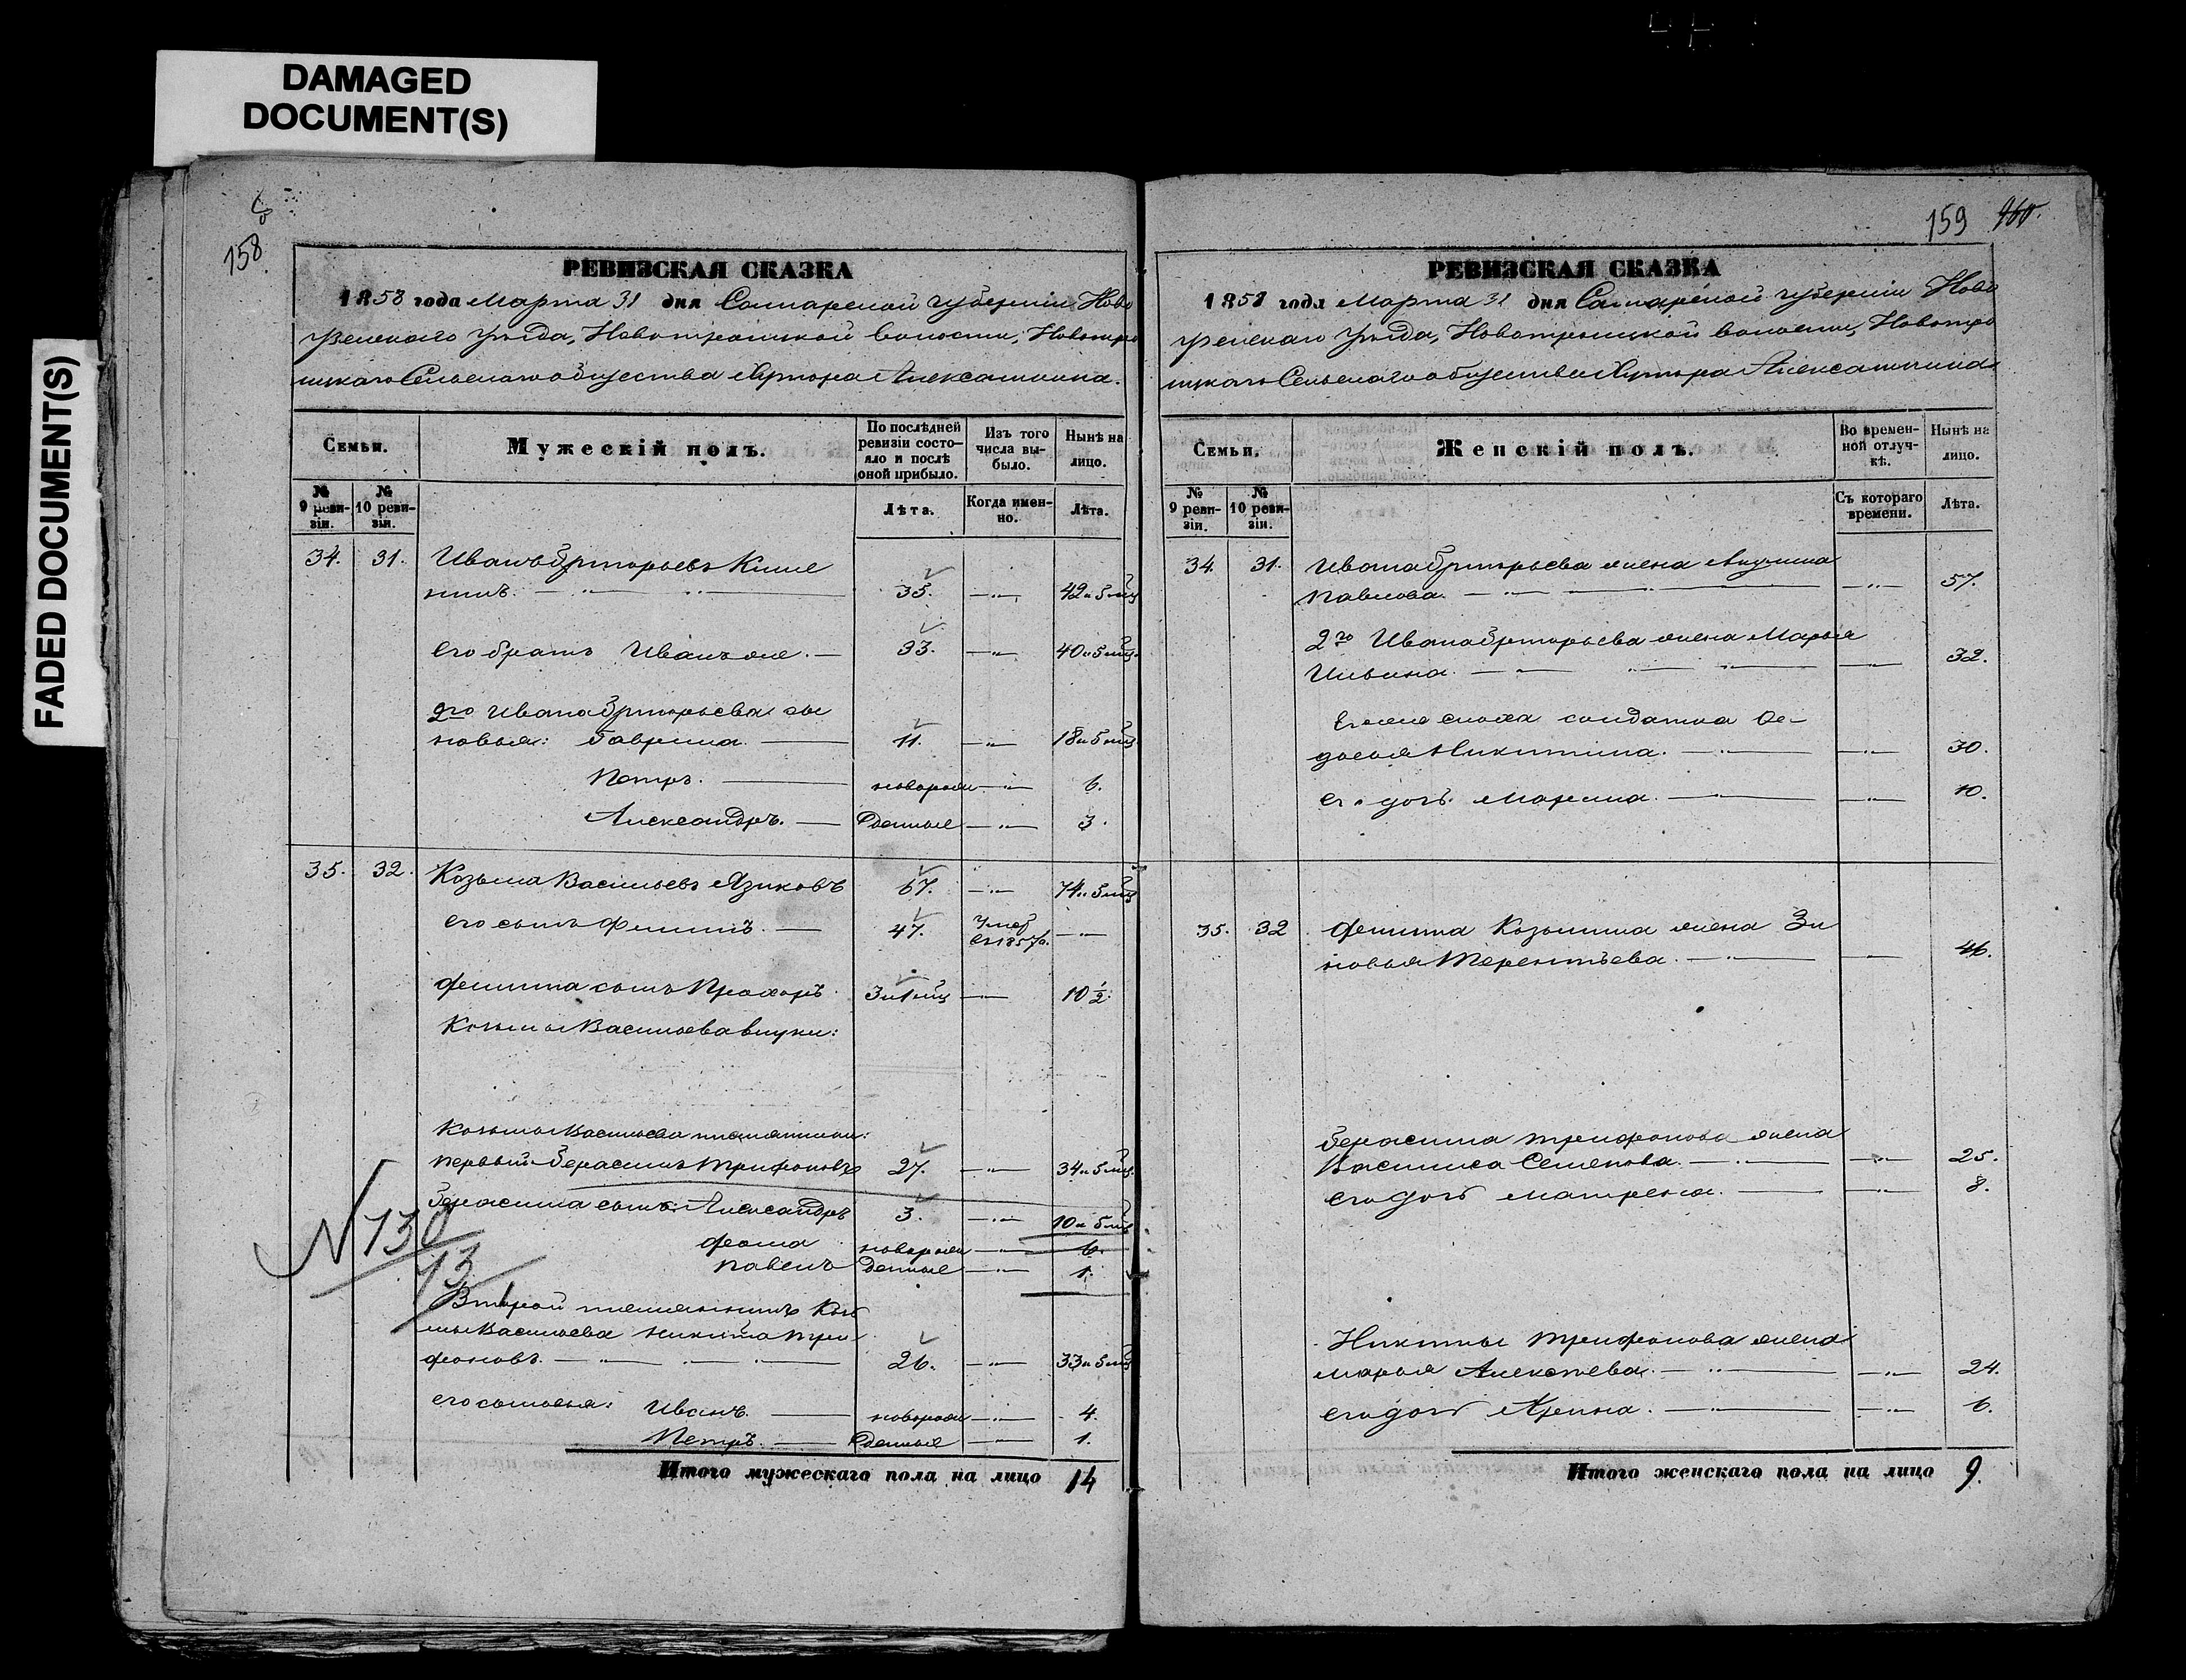 DAMAGED
DOCUMENT(S)
FADED DOCUMENT(S)
158
РЕВИЗСКАЯ СКАЗКА
1858 года Марта 31 дня Самарской губернии Ново
узенскаго Уѣзда, Новотроицкой волости, Новотро
ицкаго Сельскаго общества Хутора Алексашкина.
Семьи.
Мужескій полъ.
По послѣдней ревизіи состо-яло и послѣ оной прибыло.
Изъ того числа вы-было.
Нынѣ на лицо.
№ 9 реви-зіи.
№ 10 реви-зіи.
Лѣта.
Когда имен-но.
Лѣта.
34. 31. Иванъ Григорьевъ Кише
нинъ. 35. 42 и 5 мц
его братъ Иванъ же. 33. 40 и 5 мц.
2го Ивана Григорьева сы
новья: Гаврила. 11. 18 и 5 мц.
Петръ. новорож 6.
Александръ. денные 3.
35. 32. Козьма Васильевъ Языковъ 67. 74 и 5 мц
его сынъ Филипъ. 47. Умеръ въ 1857 г.
Филипа сынъ Прохоръ 3 и 1 мц 10 1/2.
Козьмы Васильева внуки:
Козьмы Васильева племянники:
первый Герасимъ Трифоновъ 27. 34 и 5 мц.
Герасима сынъ: Александръ 3. 10 и 5 мц
Фома новорож 6.
Павелъ денные 1.
N 130
13
Второй племянникъ Козь
мы Васильева Никита Три
фоновъ. 26. 33 и 5 мц
его сыновья: Иванъ. новорож 4.
Петръ. денные 1.
Итого мужескаго пола на лицо 14
159 160.
РЕВИЗСКАЯ СКАЗКА
1858 года Марта 31 дня Самарской губернии Ново
узенскаго Уѣзда, Новотроицкой волости, Новотро
ицкаго Сельскаго общества Хутора Алексашкина
Семьи.
Женскій полъ.
Во времен-ной отлуч-кѣ.
Нынѣ на лицо.
№ 9 реви-зіи.
№ 10 реви-зіи.
Съ котораго времени.
Лѣта.
34. 31. Ивана Григорьева жена Акулина
Павлова. 57.
2го Ивана Григорьева жена Марья
Ильина. 32.
Его же сноха солдатка Ов-
дотья Никитина. 30.
Его дочь Марина. 10.
35. 32. Филипа Козьмина жена Зи
новья Терентьева. 46.
Герасима Трифонова жена
Василиса Семенова. 25.
его дочь Матрена. 8.
Никиты Трифонова жена
Марья Алексѣева. 24.
его дочь Арина. 6.
Итого женскаго пола на лицо 9.